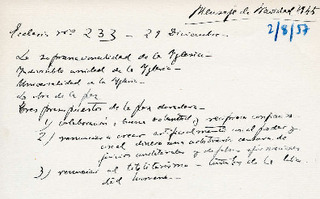 Mensaje de Navidad 1945
2/8/57
Ecclesia nº 233 - 29 Diciembre.
La supranacionalidad de la Iglesia -
Indivisible unidad de la Iglesia -
Universalidad de la Iglesia.
La hora de la paz
Tres presupuestos de la paz duradera -
1) colaboración, buena voluntad y recíproca confianza
2) renunciar a crear artificialmente con el poder y
con el dinero una arbitraria censura de
juicios unilaterales y de falsas afirmaciones
3) renunciar al totalitarismo - de la
dad humana -